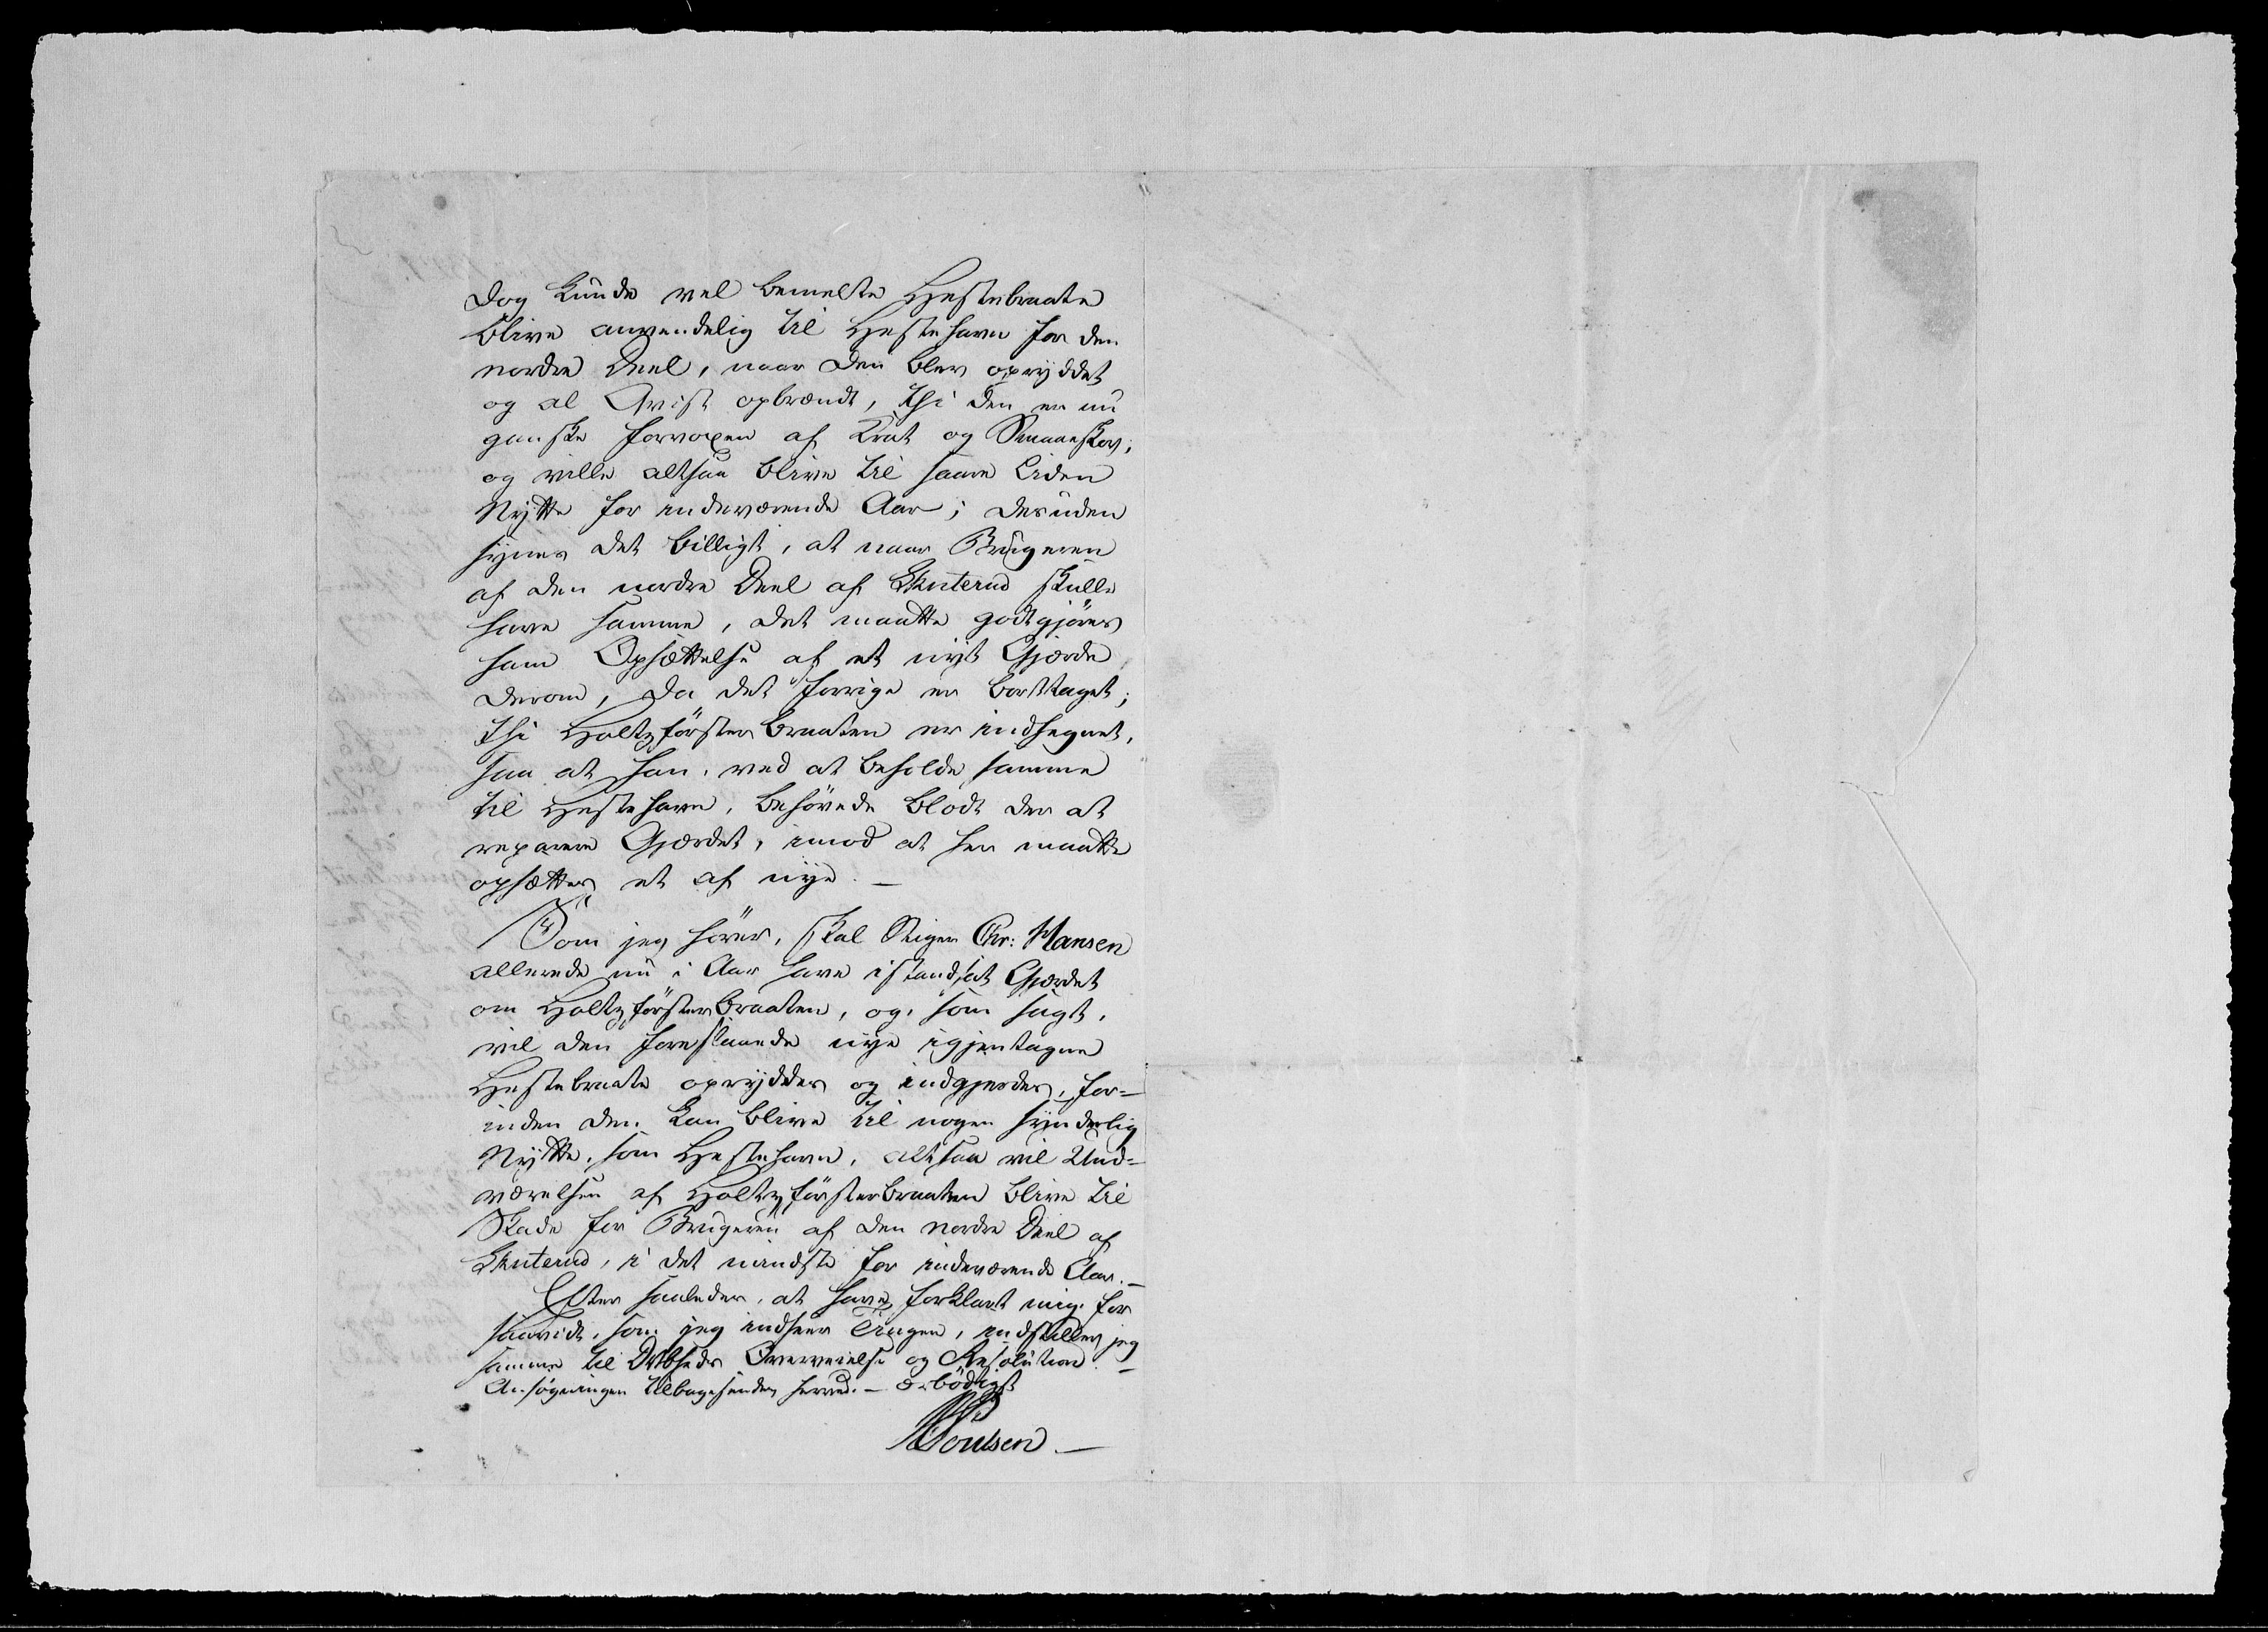 Dog kunde vel bemelte Hestebraate
blive anvendelig til Hestehavn for den
nordre Deel, naar den blev opryddet
og al Qvist opbrændt, thi den er nu
ganske forvoxen af Krat og Smaaeskov,
og ville altsaa blive til saare liden
Nytte for indeværende Aar; desuden
synes det billigt, at naar Brugeren
af den nordre Deel af Skuterud skulle
have samme, det maatte godtgjöres
ham Opsættelse af et nyt Gjærde
derom, da det forrige er borttaget;
thi Holtzförsterbraaten er indhegnet,
saa at han, ved at beholde samme
til Hestehavn, behövede blodt der at
reparere Gjærdet, imod at her maatte
opsættes et af nye. —
Som jeg hörer, skal Stiger Chr: Hansen
allerede nu i Aar have istandsat Gjærdet
om Holtzförsterbraaten, og, som sagt,
vil den foreslaaede nye igjentagne
Hestebraate opryddes og indgjerdes, for=
inden den kan blive til nogen synderlig
Nytte, som Hestehavn, altsaa vil Und=
værelsen af Holtzförsterbraaten blive til
Skade for Brugeren af den nordre Deel af
Skuterud, i det mindste for indeværende Aar. —
Efter saaledes, at have forklart mig, for
saavidt, som jeg indseer Tingen, indstilles jeg
samme til Overveielse og Resolution. —
Ansögningen tilbagesendes herved. — Erbödigst
Poulsen. —